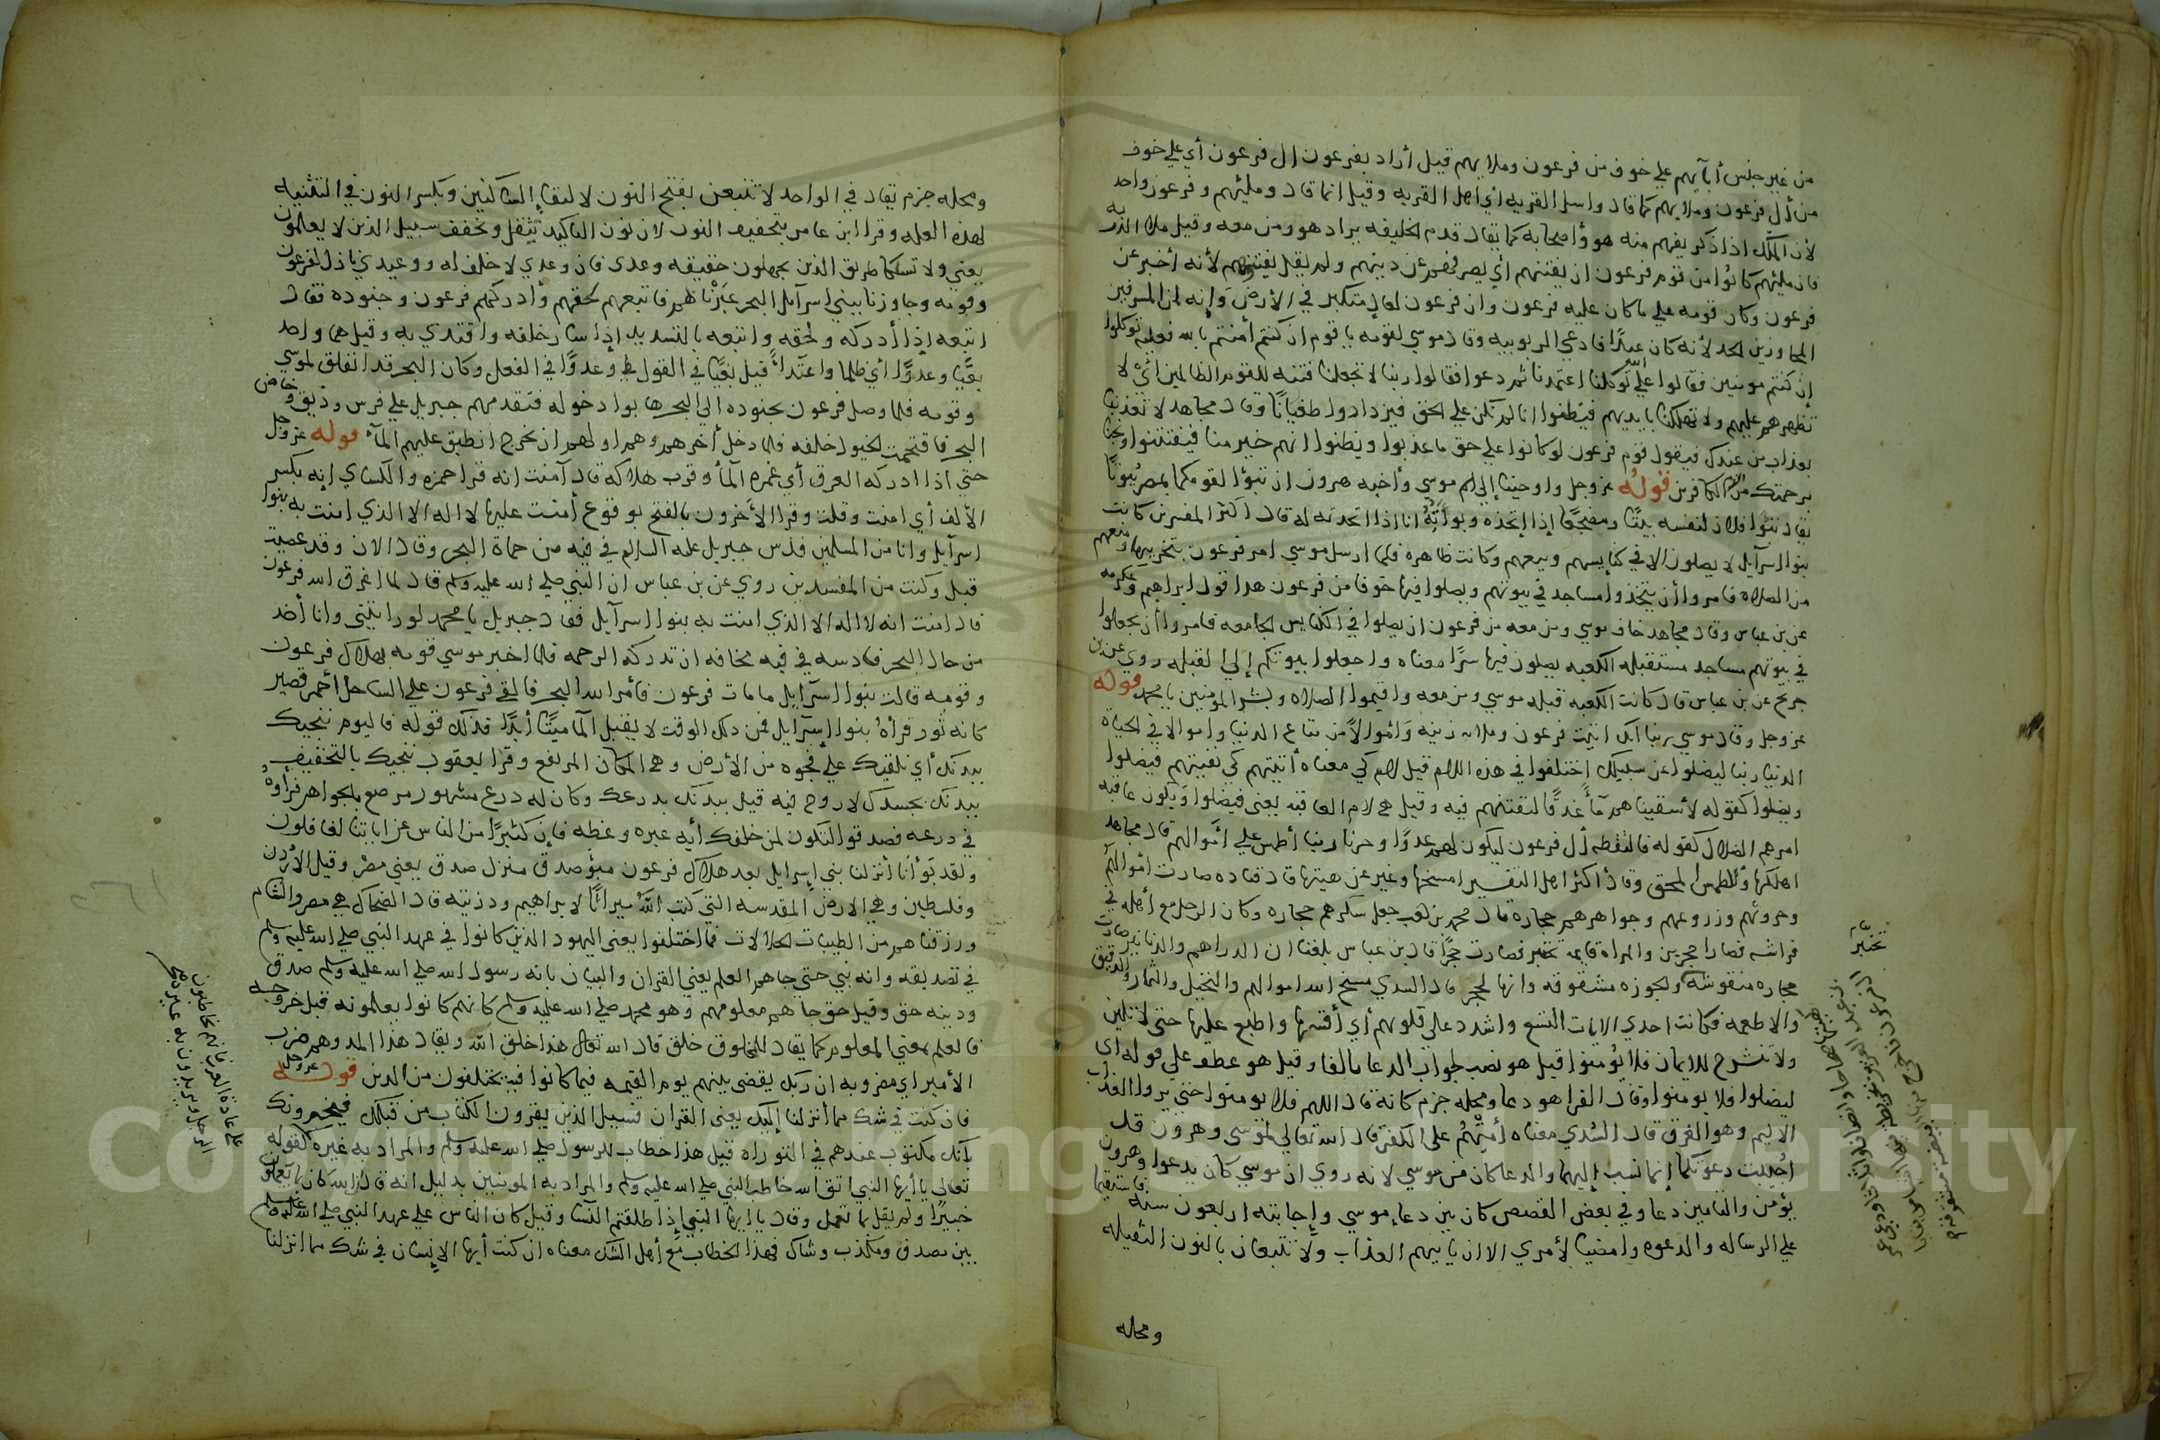 من غير جنس أبآيهم على خوف من فرعون وملايهم قيل أراد بفرعون ال فرعون أي على خوف
من أل فرعون وملايهم كما قال واسل القريه أي اهل القريه وقيل انما قال ومليهم وفرعون واحد
لأن الملك اذا ذكر يفهم منه هو وأصحابه كما يقال قدم الخليفه يراد هو ومن معه وقيل ملا الذريه
فان مليهم كانوا من قوم فرعون ان يفتنهم أي يصرفهم عن دينهم ولم يقل يفتنوهم لأنه أخبر عن
فرعون وكان قومه على ما كان عليه فرعون وان فرعون لعال متكبر في الأرض وإنه لمن المسرفين
المجاوزين الحد لأنه كان عبدًا فادعى الربوبيه وقال موسي لقومه يا قوم ان كنتم أمنتم بالله فعليه توكلوا
إن كنتم مومنين فقالوا على الله توكلنا اعتمدنا ثم دعوا فقالوا ربنا لا تجعلنا فتنه للقوم الظالمين أي لا
تظهرهم علينهم ولا تهلكنا بايديهم فيظنوا انا لم نكن على الحق فيزدادوا طغيانًا وقال مجاهد لا تعذبنا
بعذاب من عندك فيقول قوم فرعون لو كانوا على حق ما عذبوا ويظنوا انهم خير منا فيفتتنوا ونجنا
برحمتك من القوم الكافرين قوله عز وجل واوحينا إلى موسي وأخيه هرون ان تبوا لقومكما بمصر بيوتًا
يقال تبوا فلان لنفسه بيتًا ومضجعًا إذا إتخذه وبوأته انا اذا اتخدته له قال أكثر المفسرين كانت
بنوا اسرآيل لا يصلون الا في كنايسهم وبيعهم وكانت ظاهره فلما ارسل موسي امر فرعون بتخريبها ومنعهم
من الصلاه فامروا أن يتخذوا مساجد في بيوتهم ويصلوا فيها خوفا من فرعون هذا قول ابراهيم وعكرمه
عن بن عباس وقال مجاهد خاف موسي ومن معه من فرعون ان يصلوا في الكنايس الجامعه فامروا أن يجعلوا
في بيوتهم مساجد مستقبله الكعبه يصلون فيها سرًا معناه واجعلوا بيوتكم إلى القبله روي عن بن
جريج عن بن عباس قال كانت الكعبه قبله موسي ومن معه واقيموا الصلاه وبشر المومنين يا محمد قوله
عز وجل وقال موسي ربنا انك اتيت فرعون وملاه زينه وأموالًا من متاع الدنيا واموالا في الحياه
الدنيا ربنا ليضلوا عن سبيلك إختلفوا في هذه اللام قيل لام كي معناه أتيتهم كي تفتنهم فيضلوا
ويضلوا كقوله لأسقيناهم مآءً غدقًا لنفتنهم فيه وقيل هي لام العاقبه يعنى فيضلوا ويكون عاقبه
امرهم الضلال كقوله فالتقطه أل فرعون ليكون لهم عدوًا وحزنا ربنا أطمس على أموالهم قال مجاهد
اهلكها والطمس المحق وقال أكثر اهل التفسير امسخها وغير عن هيتها قال قتاده صارت أموالهم
وحروثهم وزروعهم وجواهرهم حجاره قال محمد بن كعب جعل سكرهم حجاره وكان الرجل مع أهله في
فراشه فصارا حجرين والمراه قايمه تختبز فصارت حجرًا قال بن عباس بلغنا ان الدراهم والدنانير صارت
حجاره منقوشه والجوزه مشقوقه وانها لحجر قال السدي مسخ الله اموالهم والنخيل والثمار والدقيق
والاطعمه فكانت احدي الايات التسع واشدد على قلوبهم أي أقسها واطبع عليها حتى لا تلين
ولا تنشرح للايمان فلا يومنوا قيل هو نصب لجواب الدعا بالفا وقيل هو عطف على قوله اي
ليضلوا فلا يومنوا وقال الفرا هو دعا ومحله جزم كانه قال اللهم فلا يومنوا حتى يروا العذاب
الاليم وهو الغرق قال السدي معناه أمتهم على الكفر قال الله تعالى لموسي وهرون قد
اجيبت دعوتكما إنما نسب إليهما والدعا كان من موسي لانه روي ان موسي كان يدعوا وهرون
يؤمن والتامين دعا وفي بعض القصص كان بين دعاء موسي وإجابته اربعون سنة فاستقيما
على الرساله والدعوه وامضيا لأمري الا ان ياتيهم العذاب ولا تتبعان بالنون الثقيله
ومحله
تختبز
ومحله جزم يقال في الواحد لا تتبعن بفتح النون لالتقاء الساكنين وبكسر النون في التثنيه
لهذه العله وقرا ابن عامر بتخفيف النون لان نون التاكيد تثقل وتخفف سبيل الذين لا يعلمون
يعني ولا تسلكا طريق الذين يجهلون حقيقه وعدى فان وعدي لا خلف له ووعيدي نازل لفرعون
وقومه وجاوزنا ببني اسرآيل البحر عبرنا هم فاتبعهم لحقهم وأدركهم فرعون وجنوده يقال
اتبعه إذا أدركه ولحقه واتبعه بالتشديد إذا سار خلفه واقتدي به وقيل هما واحد
بغيًا وعدوًا أي ظلما واعتدآءً قيل بغيًا في القول وعدوًا في الفعل وكان البحر قد انفلق لموسي
وقومه فلما وصل فرعون بجنوده الي البحر هابوا دخوله فتقدمهم جبريل على فرس وديق وخاض
البحر فاقتحمت الخيول خلفه فلما دخل أخرهم وهم اولهم ان يخرج انطبق عليهم المآء قوله عز وجل
حتي اذا ادركه الغرق أي غمره المآء وقرب هلاكه قال آمنت انه قرا حمزه والكساي إنه بكسر
الألف أي امنت وقلت وقرا الأخرون بالفتح بوقوع أمنت عليها لا اله الا الذي امنت به بنوا
اسرآيل وانا من المسلمين فدس جبريل عليه السلام في فيه من حماة البحر وقال الان وقد عصيت
قبل وكنت من المفسدين روي عن بن عباس ان النبي صلى الله عليه وسلم قال لما اغرق الله فرعون
قال امنت انه لا اله الا الذي امنت به بنوا اسرآيل فقال جبريل يا محمد لو رايتني وانا أخد
من حال البحر فادسه في فيه مخافه ان تدركه الرحمه فلما اخبر موسي قومه بهلاك فرعون
وقومه قالت بنوا اسرآيل ما مات فرعون فأمر الله البحر فالقى فرعون على الساحل أحمر قصير
كانه ثور فرأه بنوا إسرآيل فمن ذلك الوقت لا يقبل المآ ميتًا أبدًا فذلك قوله فاليوم ننجيك
ببدنك أي نلقيك على نجوه من الأرض وهي المكان المرتفع وقرا يعقوب ننجيك بالتخفيف
ببدنك بجسدك لا روح فيه قيل ببدنك بدرعك وكان له درع مشهور مرصع بالجواهر فراوه
في درعه فصدقوا لتكون لمن خلفك أيه عبره وعظه فإن كثيرًا من الناس عن اياتنا لغافلون
ولقد بوأنا أنزلنا بني إسرايل بعد هلاك فرعون مبوأ صدق منزل صدق يعني مصر وقيل الأردن
وفلسطين وهي الارض المقدسه التي كتب الله ميراثًا لابراهيم وذريته قال الضحاك هي مصر والشام
ورزقناهم من الطيبات الحلالات فما اختلفوا يعني اليهود الذين كانوا في عهد النبي صلى الله عليه وسلم
في تصديقه وانه نبي حتى جاهم العلم يعني القران والبيان بانه رسول الله صلى الله عليه وسلم صدق
ودينه حق وقيل حتى جاهم معلومهم وهو محمد صلى الله عليه وسلم كانهم كانوا يعلمونه قبل خروجه
فالعلم بمعني المعلوم كما يقال للمخلوق خلق قال الله تعالى هذا خلق الله ويقال هذا الدرهم ضرب
الأمير اي مضروبه ان ربك يقضي بينهم يوم القيمه فيما كانوا فيه يختلفون من الدين قوله عز وجل
فان كنت في شك مما أنزلنا إليك يعني القران فسيل الذين يقرون الكتاب من قبلك فيخبرونك
بأنك مكتوب عندهم في التوراه قيل هذا خطاب للرسول صلى الله عليه وسلم والمراد به غيره كقوله
تعالى يا أيها النبي اتق الله خاطب النبي صلى الله عليه وسلم والمراد به المومنين بدليل انه قال ان الله كان بما يعملون
خبيرًا ولم يقل بما تعمل وقال يا ايها النبي إذا طلقتم النسا وقيل كان الناس على عهد النبي صلى الله عليه وسلم
بين مصدق ومكذب وشاك فهذا الخطاب مع أهل الشك معناه ان كنت أيها الإنسان في شك مما انزلنا
على عادة العرب فانهم يخاطبون
الرجل ويريدون به غيره